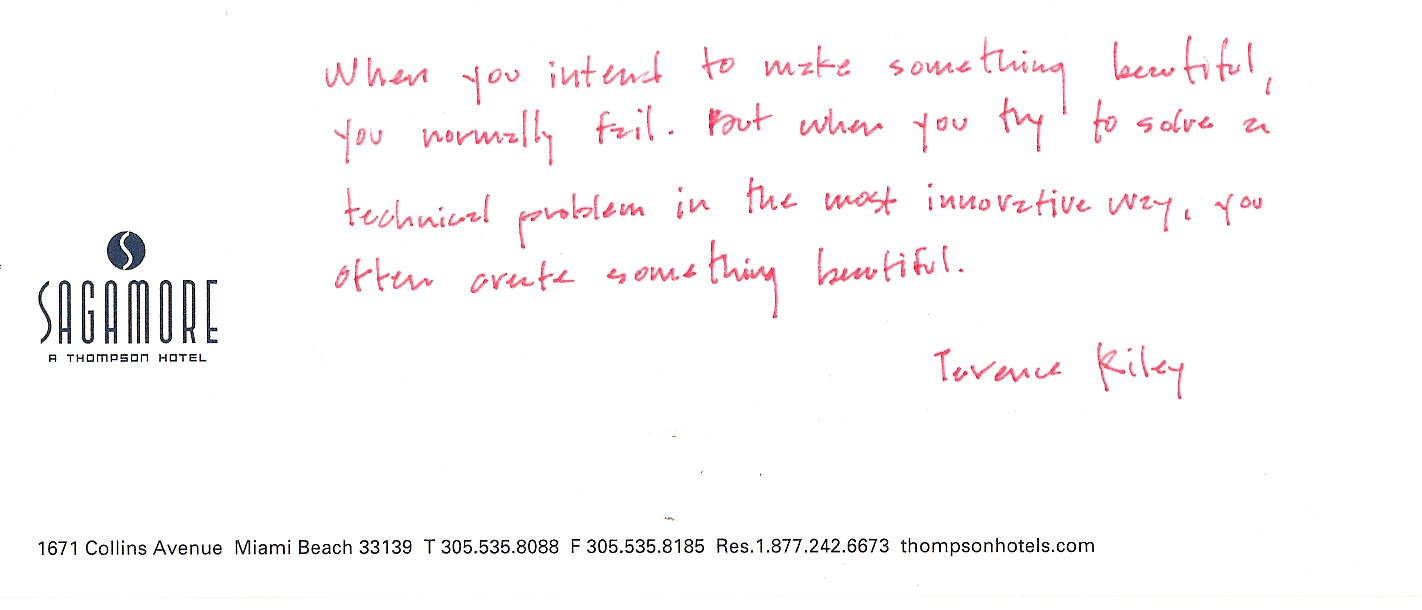 When you intend to make something beautiful,
you normally fail. But when you try to solve a
technical problem in the most innovative way, you
often create something beautiful.
Terence Riley
SAGAMORE
A THOMPSON HOTEL
1671 Collins Avenue Miami Beach 33139 T 305.535.8088 F 305.535.8185 Res.1.877.242.6673 thompsonhotels.com